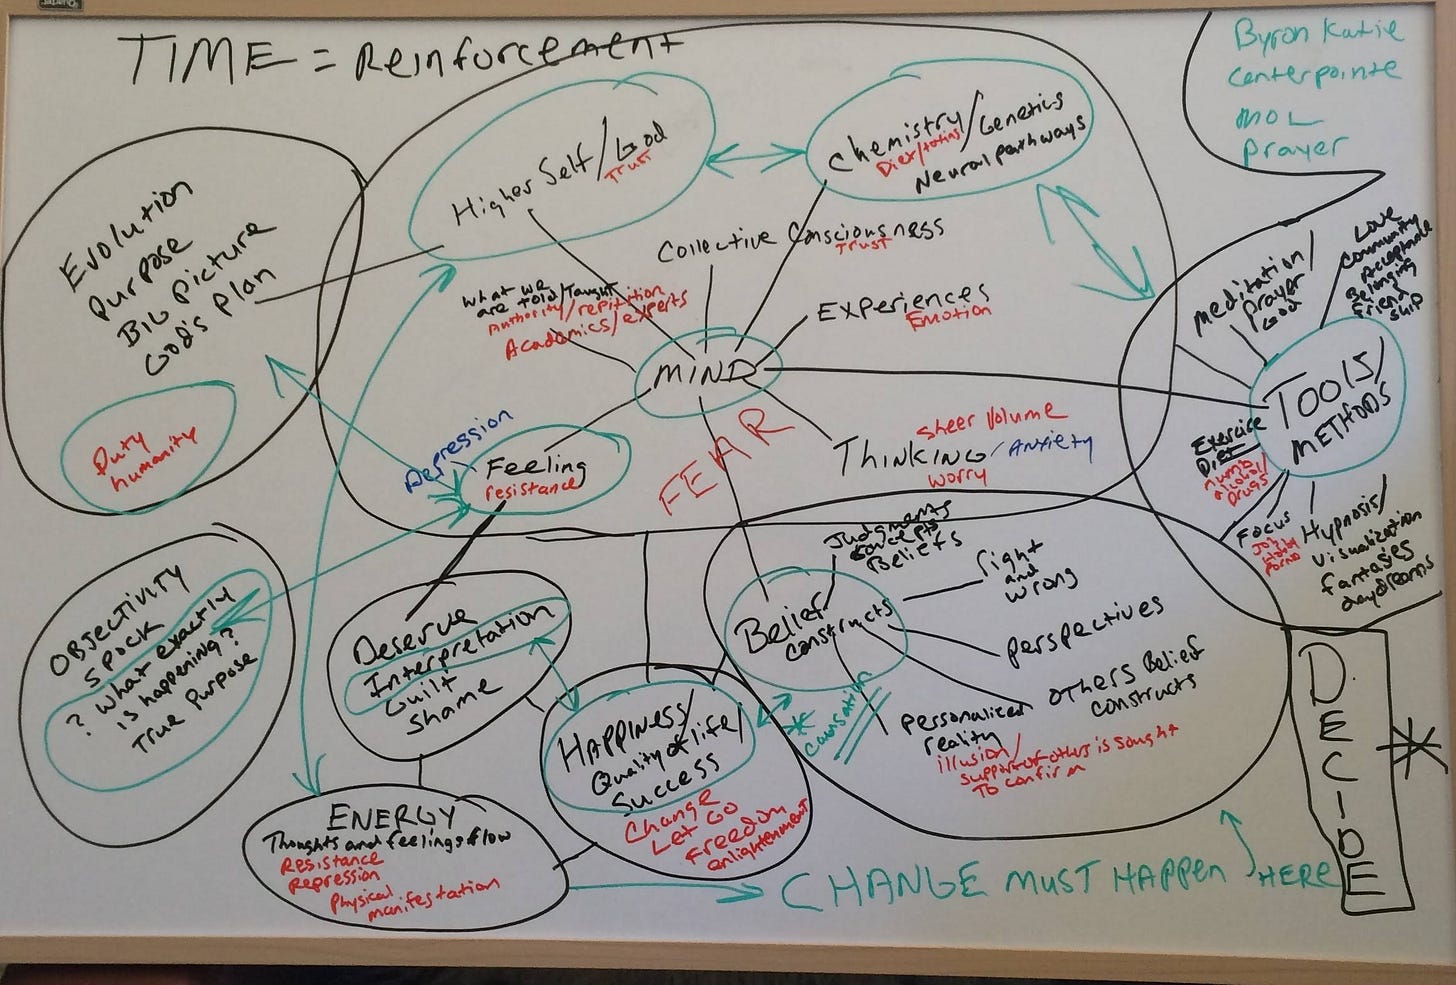 TIME = Reinforcement
Byron Katie
Centerpointe
MOL
Prayer
Evolution
Purpose
BIG PICTURE
God's Plan
Duty
humanity
Higher Self/God
Trust
Chemistry/Genetics
Neural pathways
Collective Consciousness
Trust
what we
are told/Taught
Authority/repitition
Academics/experts
Experiences
Emotion
MIND
FEAR
Depression
Feeling
resistance
sheer Volume
Thinking/Anxiety
worry
meditation/
Prayer
God
Love
Community
Acceptance
Belonging
Friend
ship
TOOLS/
METHODS
Exercise
Diet
numb
alcohol/
Drugs
Focus
Job
Hobby
Porno
Hypnosis/
Visualization
fantasies
daydreams
OBJECTIVITY
SPOCK
? What exactly
is happening?
True Purpose
Deserve
Interpretation
Guilt
Shame
Judgments
Concepts
Beliefs
right
and
wrong
Belief
constructs
perspectives
OTHERS Belief
constructs
Personalized
reality
illusion/
support of others is sought
To confirm
* causation
HAPPINESS/
Quality of life/
Success
Change
Let Go
Freedom
enlightenment
ENERGY
Thoughts and feelings flow
Resistance
Repression
Physical
manifestation
CHANGE MUST HAPPEN HERE
DECIDE
*